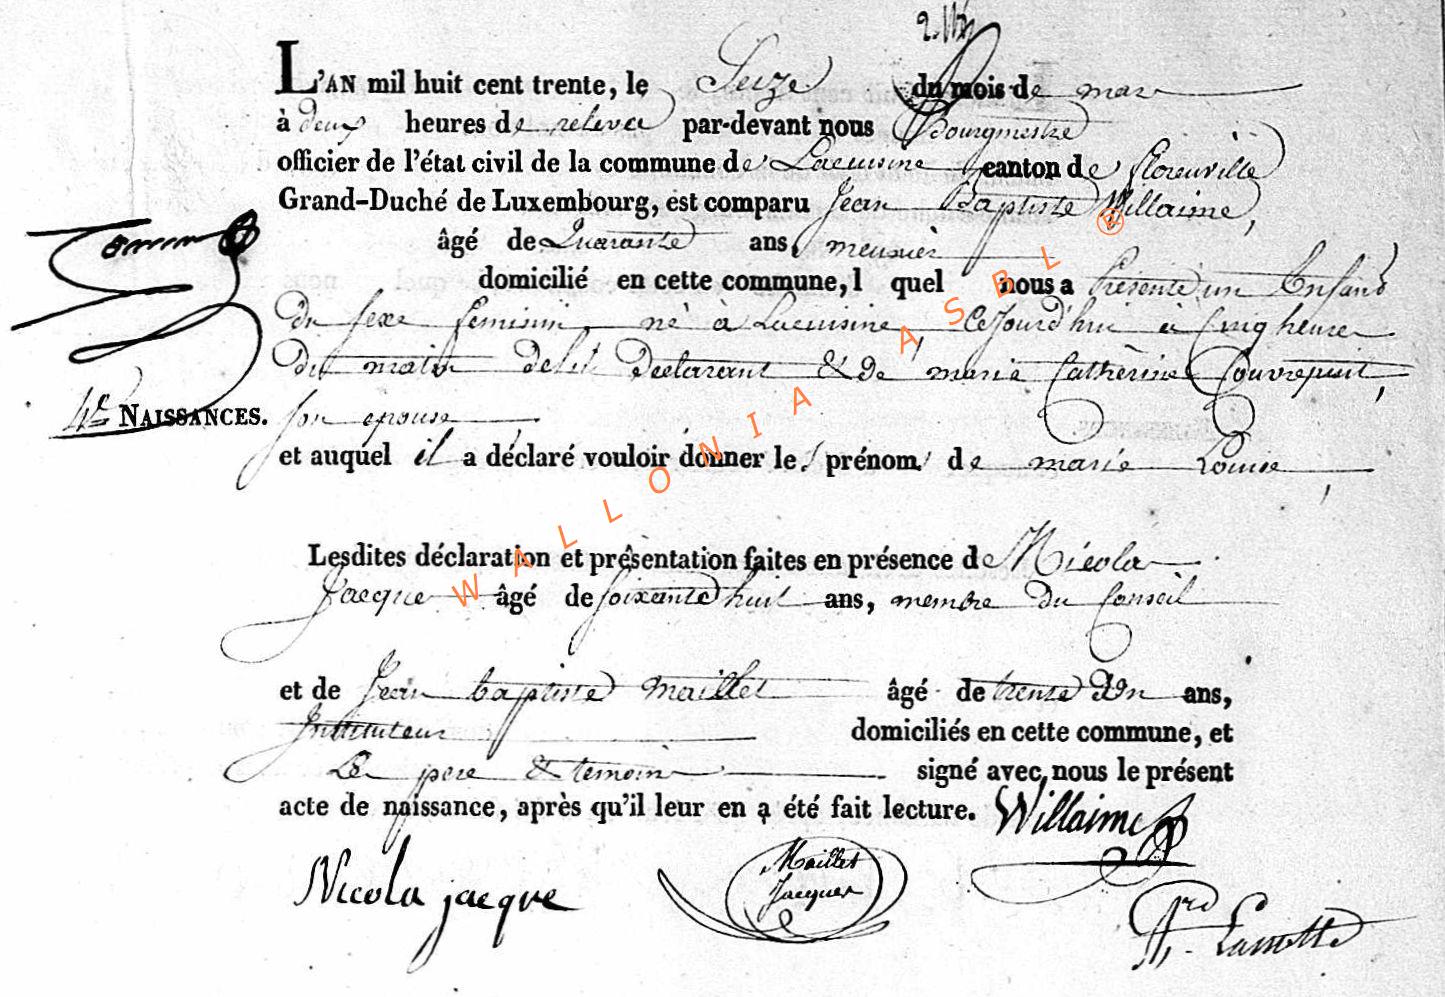 L'AN mil huit cent trente, le Seize du mois de mars
à deux heures de relevée par-devant nous Bourgmestre
officier de l'état civil de la commune de Lacuisine canton de Florenville
Grand-Duché de Luxembourg, est comparu Jean Baptiste Willaime,
âgé de Quarante ans, meunier
domicilié en cette commune, l quel nous a présenté un Enfand
du sexe feminin, né à Lacuisine, Cejourd'hui à Cinq heures
du matin de lui déclarant & de marie Catherine Couvrepuit,
4e NAISSANCES. son epouse,
et auquel il a déclaré vouloir donner les prénoms de marie Louise,
Lesdites déclaration et présentation faites en présence de Nicola
Jacque âgé de soixante huit ans, membre du Conseil
et de Jean baptiste Maillet âgé de trente Un ans,
Instituteur domiciliés en cette commune, et
Les pere & temoins signé avec nous le présent
acte de naissance, après qu'il leur en a été fait lecture. Willaime
Nicola jacque
Maillet
Jacques
Lamotte
WALLONIA ASBL ®